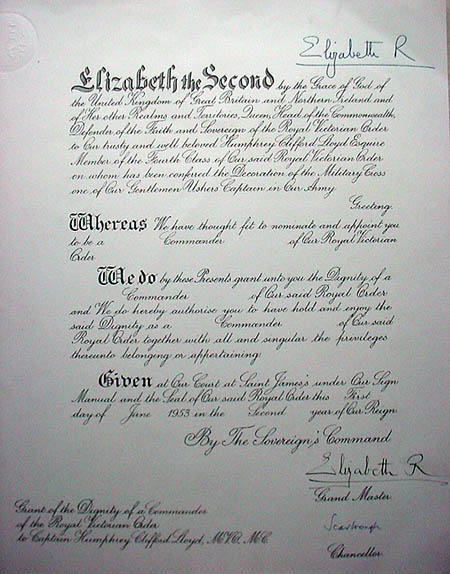 Elizabeth R
Elizabeth the Second by the Grace of God of
the United Kingdom of Great Britain and Northern Ireland and
of Her other Realms and Territories, Queen, Head of the Commonwealth,
Defender of the Faith and Sovereign of the Royal Victorian Order
to Our trusty and well beloved Humphrey Clifford Lloyd Esquire
Member of the Fourth Class of Our said Royal Victorian Order
on whom has been conferred the Decoration of the Military Cross
one of Our Gentlemen Ushers Captain in Our Army
Greeting.
Whereas We have thought fit to nominate and appoint you
to be a Commander of Our Royal Victorian
Order
We do by these Presents grant unto you the Dignity of a
Commander of Our said Royal Order
and We do hereby authorise you to have hold and enjoy the
said Dignity as a Commander of Our said
Royal Order together with all and singular the privileges
thereunto belonging or appertaining:
Given at Our Court at Saint James's under Our Sign
Manual and the Seal of Our said Royal Order this First
day of June 1953 in the Second year of Our Reign.
By The Sovereign's Command
Elizabeth R
Grand Master.
Scarbrough
Chancellor.
Grant of the Dignity of a Commander
of the Royal Victorian Order
to Captain Humphrey Clifford Lloyd, M.V.O., M.C.